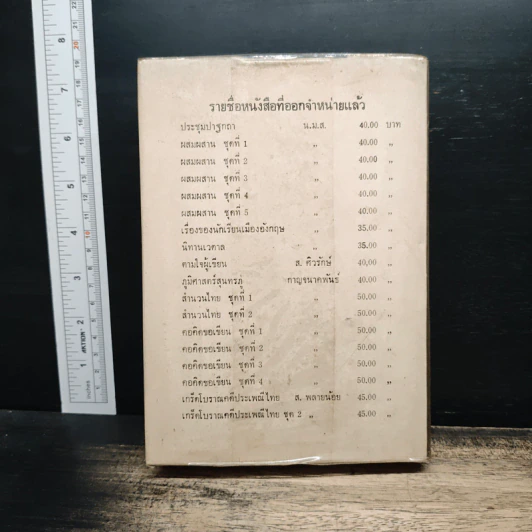 รายชื่อหนังสือที่ออกจำหน่ายแล้ว
ประชุมปาฐกถา น.ม.ส. 40.00 บาท
ผสมผสาน ชุดที่ 1 ,, 40.00 ,,
ผสมผสาน ชุดที่ 2 ,, 40.00 ,,
ผสมผสาน ชุดที่ 3 ,, 40.00 ,,
ผสมผสาน ชุดที่ 4 ,, 40.00 ,,
ผสมผสาน ชุดที่ 5 ,, 40.00 ,,
เรื่องของนักเรียนเมืองอังกฤษ ,, 35.00 ,,
นิทานเวตาล ,, 35.00 ,,
ตามใจผู้เขียน ส. ศิวรักษ์ 40.00 ,,
ภูมิศาสตร์สุนทรภู่ กาญจนาคพันธุ์ 40.00 ,,
สำนวนไทย ชุดที่ 1 ,, 50.00 ,,
สำนวนไทย ชุดที่ 2 ,, 50.00 ,,
คอคิดขอเขียน ชุดที่ 1 ,, 50.00 ,,
คอคิดขอเขียน ชุดที่ 2 ,, 50.00 ,,
คอคิดขอเขียน ชุดที่ 3 ,, 50.00 ,,
คอคิดขอเขียน ชุดที่ 4 ,, 50.00 ,,
เกร็ดโบราณคดีประเพณีไทย ส. พลายน้อย 45.00 ,,
เกร็ดโบราณคดีประเพณีไทย ชุด 2 ,, 45.00 ,,